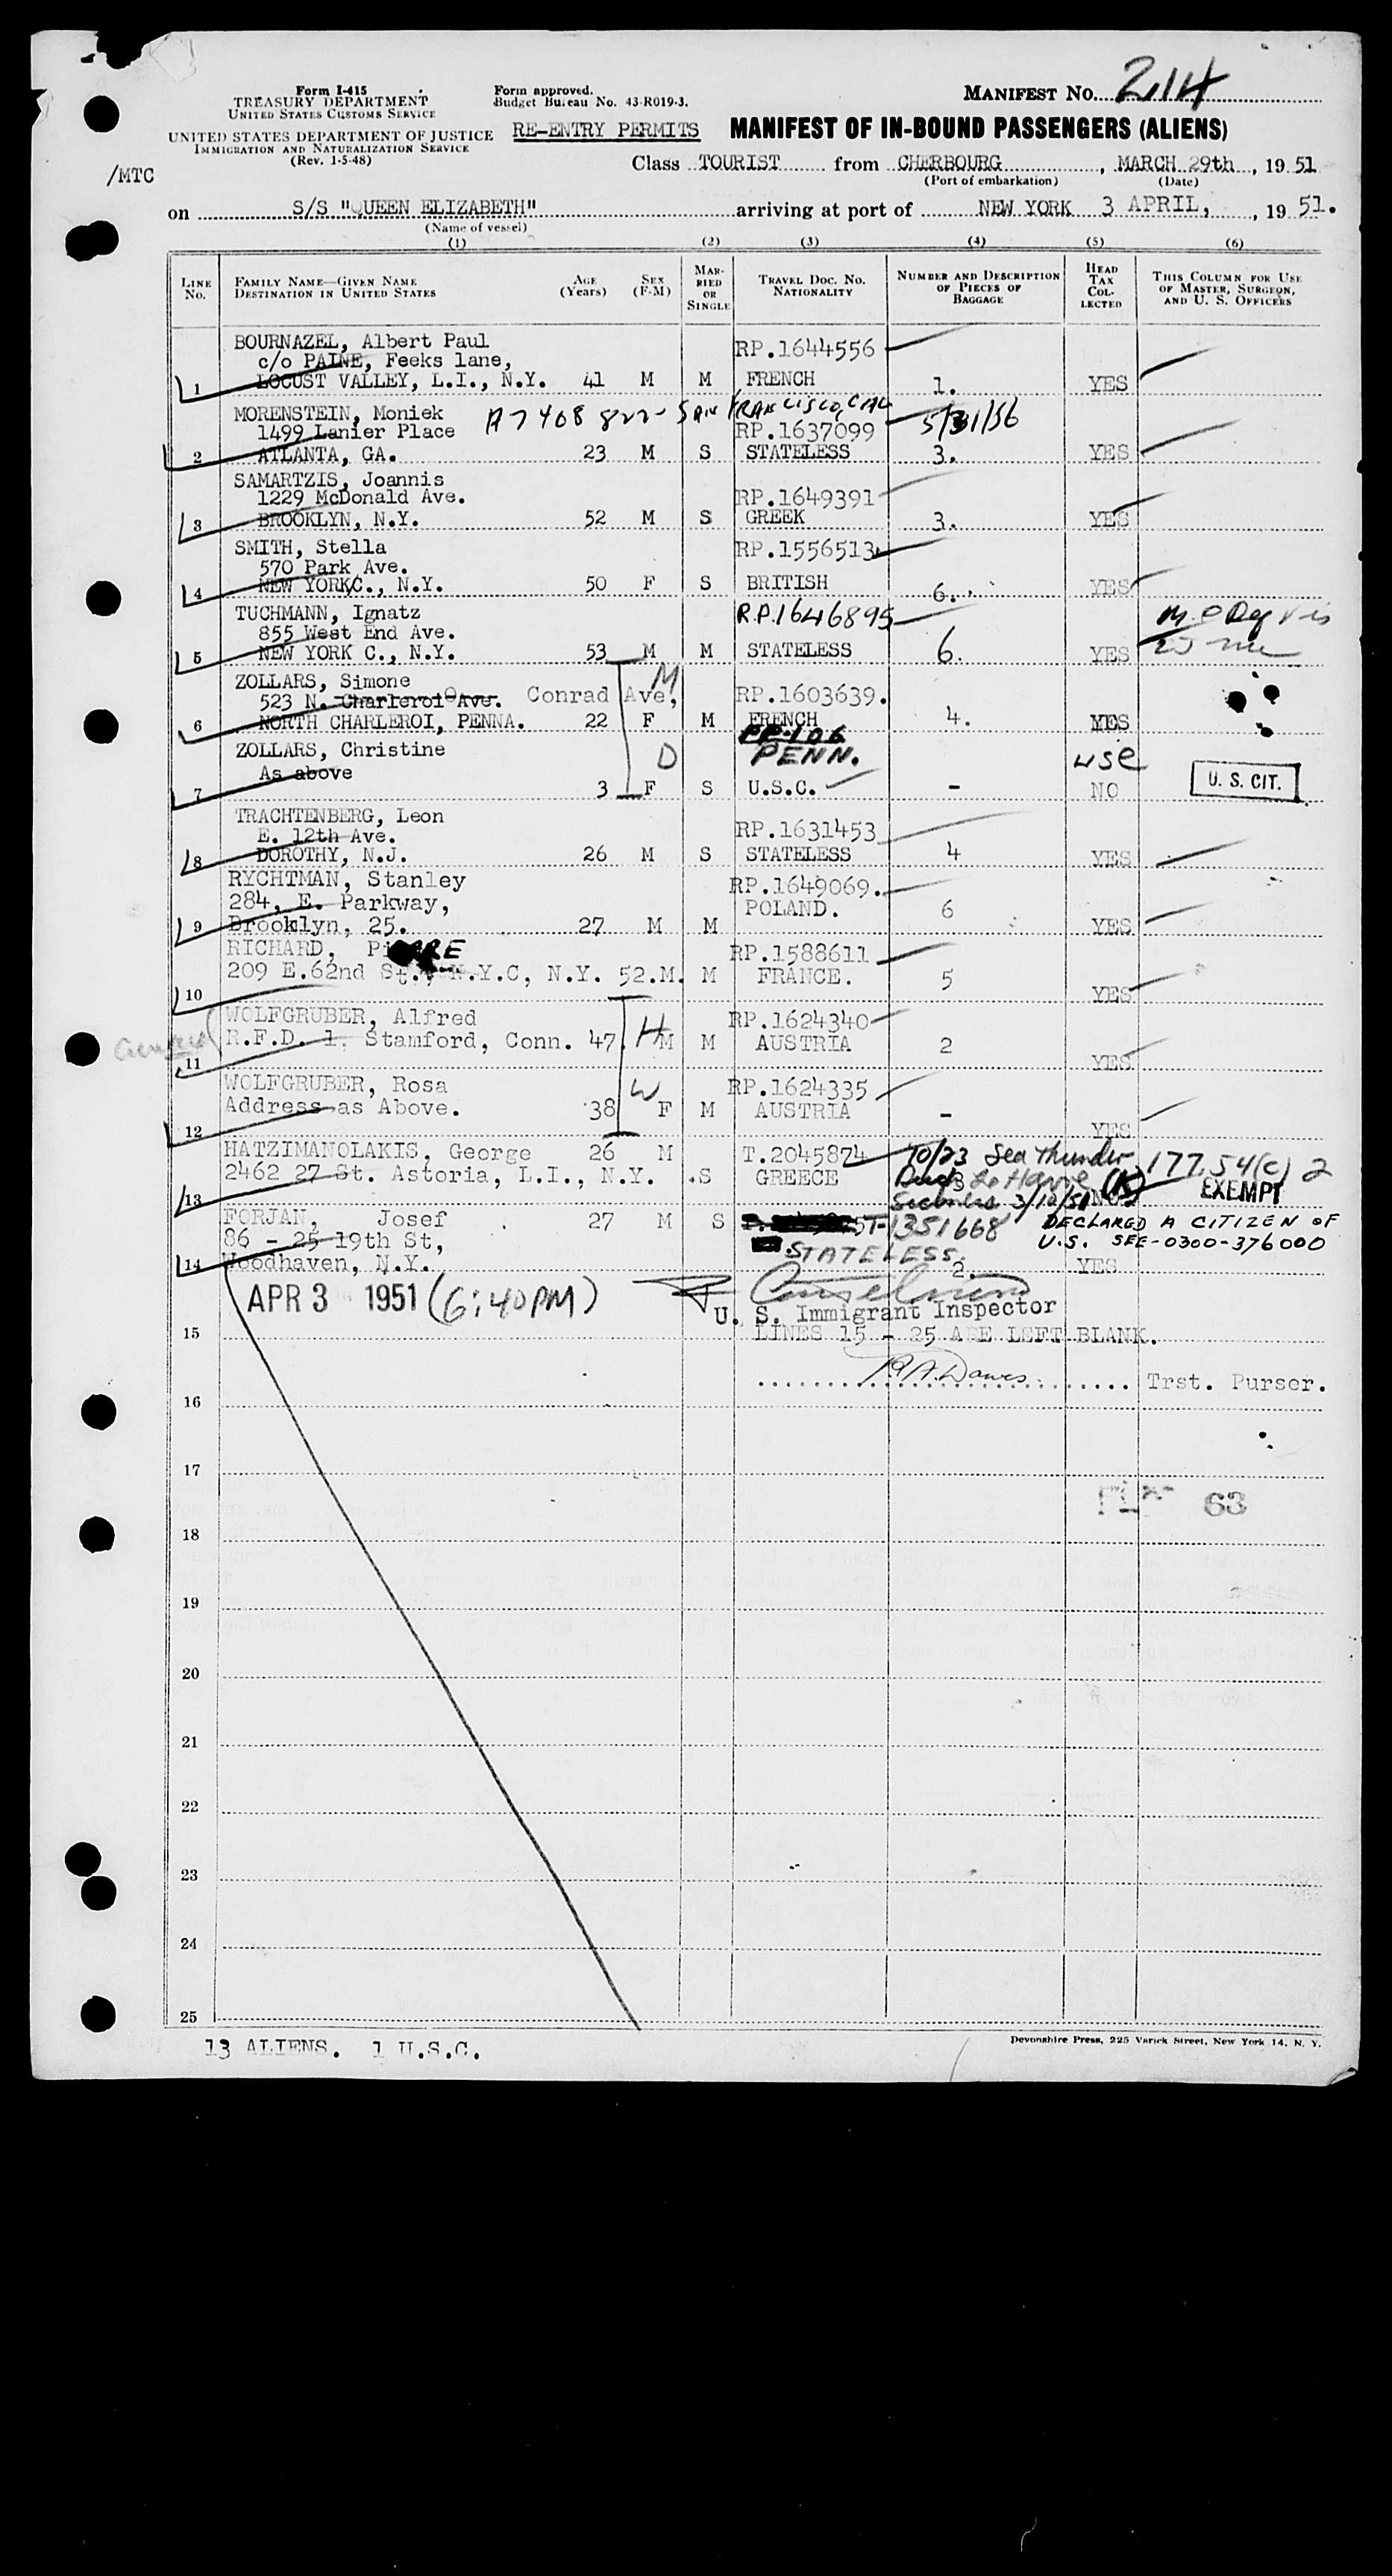 Form I-415
TREASURY DEPARTMENT
UNITED STATES CUSTOMS SERVICE
UNITED STATES DEPARTMENT OF JUSTICE
IMMIGRATION AND NATURALIZATION SERVICE
(Rev. 1-5-48)
Form approved.
Budget Bureau No. 43-R019-3.
MANIFEST NO. 214
RE-ENTRY PERMITS MANIFEST OF IN-BOUND PASSENGERS (ALIENS)
/MTC
Class TOURIST from CHERBOURG, MARCH 29th, 19 51
(Port of embarkation) (Date)
on S/S "QUEEN ELIZABETH" arriving at port of NEW YORK 3 APRIL, , 19 51.
(Name of vessel)
(1) (2) (3) (4) (5) (6)
LINE No.
FAMILY NAME—GIVEN NAME
DESTINATION IN UNITED STATES
AGE (Years)
SEX (F-M)
MARRIED OR SINGLE
TRAVEL DOC. NO.
NATIONALITY
NUMBER AND DESCRIPTION OF PIECES OF BAGGAGE
HEAD TAX COLLECTED
THIS COLUMN FOR USE OF MASTER, SURGEON, AND U. S. OFFICERS
BOURNAZEL, Albert Paul RP.1644556
c/o PAINE, Feeks lane,
1 LOCUST VALLEY, L.I., N.Y. 41 M M FRENCH 1. YES
MORENSTEIN, Moniek A7408822- SAN FRANCISCO, CAL 5/31/56
1499 Lanier Place RP.1637099
2 ATLANTA, GA. 23 M S STATELESS 3. YES
SAMARTZIS, Joannis
1229 McDonald Ave. RP.1649391
3 BROOKLYN, N.Y. 52 M S GREEK 3. YES
SMITH, Stella RP.1556513
570 Park Ave.
4 NEW YORK C., N.Y. 50 F S BRITISH 6. YES
TUCHMANN, Ignatz R.P.1646895
855 West End Ave.
5 NEW YORK C., N.Y. 53 M M STATELESS 6. YES
ZOLLARS, Simone M
523 N. Charleroi Ave. Conrad Ave, RP.1603639.
6 NORTH CHARLEROI, PENNA. 22 F M FRENCH 4. YES
PP-106
ZOLLARS, Christine D PENN. USC
As above
7 3 F S U.S.C. - NO U. S. CIT.
TRACHTENBERG, Leon
E. 12th Ave. RP.1631453
8 DOROTHY, N.J. 26 M S STATELESS 4 YES
RYCHTMAN, Stanley RP.1649069.
284, E. Parkway, POLAND. 6
9 Brooklyn, 25. 27 M M YES
RICHARD, PiERRE RP.1588611
209 E.62nd St., N.Y.C, N.Y. 52.M. M FRANCE. 5
10 YES
WOLFGRUBER, Alfred H RP.1624340
R.F.D. 1. Stamford, Conn. 47. M M AUSTRIA 2
11 YES
WOLFGRUBER, Rosa W RP.1624335
Address as Above. 38 F M AUSTRIA -
12 YES
HATZIMANOLAKIS, George 26 M T.2045874 10/23 Sea Thunder 177.54(c) 2
2462 27 St. Astoria, L.I., N.Y. .S GREECE 3 Le Havre (K) EXEMPT
13 3/10/51 NO
FORJAN, Josef 27 M S T-1351668 DECLARED A CITIZEN OF
86 - 25 19th St, U.S. SEE-0300-376000
STATELESS.
14 Woodhaven, N.Y. 2 YES
APR 3 1951 (6:40PM)
U. S. Immigrant Inspector
15 LINES 15 - 25 ARE LEFT BLANK.
P.A. Dawes Trst. Purser.
16
17
63
18
19
20
21
22
23
24
25
13 ALIENS. 1 U.S.C.
Devonshire Press, 225 Varick Street, New York 14, N. Y.